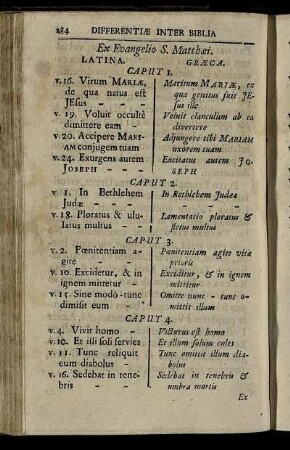 284 DIFFERENTIÆ INTER BIBLIA
Ex Evangelio S. Matthæi.
LATINA. GRÆCA.
CAPUT 1.
v. 16. Virum MARIÆ, Maritum MARIÆ, ex
de qua natus est qua genitus fuit JE
JEsus - - sus ille
v. 19. Voluit occultè Voluit clanculum ab ea
dimittere eam - divertere
v. 20. Accipere MARI- Adjungere tibi MARIAM
AM conjugem tuam uxorem tuam
v. 24. Exurgens autem Excitatus autem JO-
JOSEPH - - SEPH
CAPUT 2.
v. 1. In Bethlehem In Bethlehem Judææ
Judæ - - -
v. 18. Ploratus & ulu- Lamentatio ploratus &
latus multus - fletus multus
CAPUT 3.
v. 2. Pœnitentiam a- Pœnitentiam agite vitæ
gite - - - prioris
v. 10. Excidetur, & in Exciditur, & in ignem
ignem mittetur - mittitur
v. 15. Sine modo - tunc Omitte nunc - tunc o-
dimisit eum - mittit illum
CAPUT 4.
v. 4. Vivit homo - Victurus est homo
v. 10. Et illi soli servies Et illum solum coles
v. 11. Tunc reliquit Tunc omittit illum dia-
eum diabolus - bolus
v. 16. Sedebat in tene- Sedebat in tenebris &
bris - - - umbra mortis
Ex